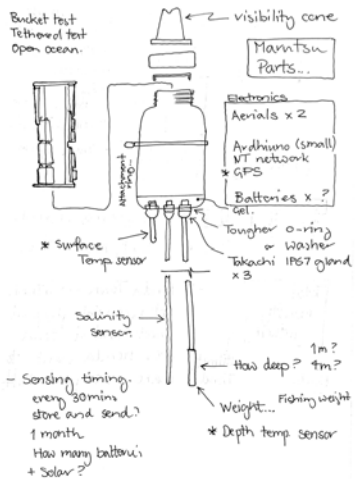 Bucket test
Tethered test
Open ocean.
visibility cone
Mamtsu
Parts...
Electronics
Aerials x 2
Ardhiuno (small)
NT network
* GPS
Batteries x ?
Gel.
attachment
ring...
Tougher o-ring
or washer
Takachi IP67 gland
x 3
* Surface
Temp sensor
Salinity
sensor.
How deep?
1m?
4m?
Weight...
Fishing weight
* Depth temp sensor
- Sensing timing.
every 30mins
store and send?
1 month
How many batteries
+ Solar?